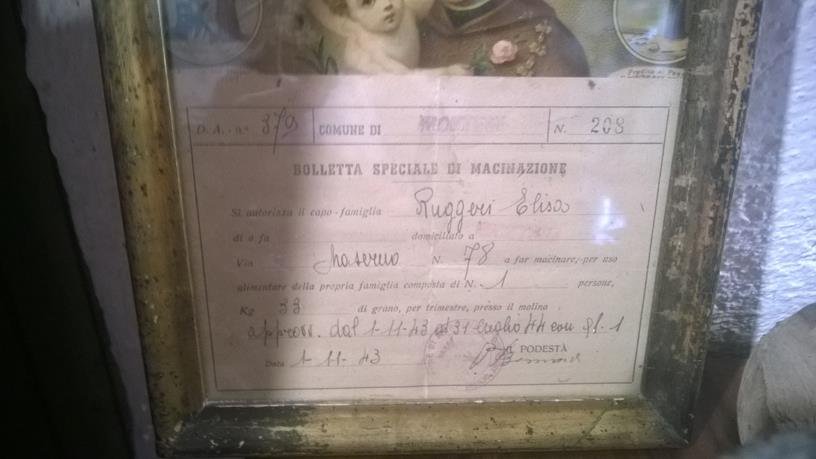 D. A. - n° 379 COMUNE DI N. 208
BOLLETTA SPECIALE DI MACINAZIONE
Si autorizza il capo-famiglia Ruggeri Elisa
di o fa domiciliato a
Via N. 78 a far macinare, per uso
alimentare della propria famiglia composta di N. 1 persone,
Kg 33 di grano, per trimestre, presso il molino
approv. dal 1-11-43 al 31 luglio 44 con gl. 1
Data 1-11-43 IL PODESTÀ